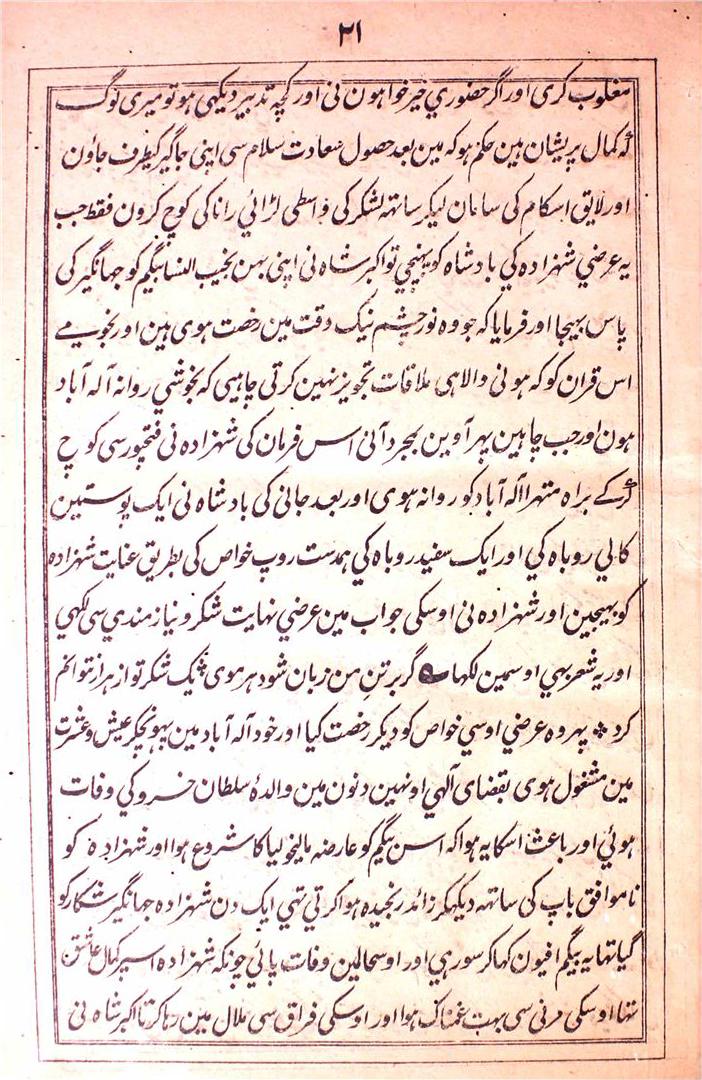 ۲۱
مغلوب کری اور اگر حضوری خیرخواہون نی اور کچہہ تدبیر دیکہی ہو تو میری لوگ
کہ کمال پریشان ہین حکم ہو کہ مین بعد حصول سعادت سلام سی اپنی جاگیر کیطرف جاؤن
اور لایق اسکام کی سامان لیکر ساتہہ لشکر کی واسطی لڑائی رانا کی کوچ کرون فقط جب
یہ عرضی شہزادہ کی بادشاہ کو پہنچی تو اکبر شاہ نی اپنی بہن نجیب النسا بیگم کو جہانگیر کی
پاس بہیجا اور فرمایا کہ جو وہ نور چشم نیک وقت مین رخصت ہوی ہین اور نجومے
اس قران کو کہ ہونی والا ہی ملاقات تجویز نہین کرتی چاہیی کہ بخوشی روانہ آلہ آباد
ہون اور جب چاہین پہر آوین بمجرد آنی اس فرمان کی شہزادہ نی فتحپور سی کوچ
کرکے براہ متہرا آلہ آباد کو روانہ ہوی اور بعد جانی کی بادشاہ نی ایک پوستین
کالی روباہ کی اور ایک سفید روباہ کی ہمدست روپ خواص کی بطریق عنایت شہزادہ
کو بہیجین اور شہزادہ نی اوسکی جواب مین عرضی نہایت شکر و نیازمندی سی لکہی
اور یہ شعر بہی اوسمین لکہا ؎ گر بر تنِ من زبان شود ہر موی ٭ یک شکر تو از ہزار نتوانم
کرد ٭ پہر وہ عرضی اوسی خواص کو دیکر رخصت کیا اور خود آلہ آباد مین پہونچکر عیش و عشرت
مین مشغول ہوی بقضای آلہی اونہین دنون مین والدۂ سلطان خسرو کی وفات
ہوئی اور باعث اسکا یہ ہوا کہ اس بیگم کو عارضہ مالیخولیا کا شروع ہوا اور شہزادہ کو
ناموافق باپ کی ساتہہ دیکہکر زائد رنجیدہ ہوا کرتی تہی ایک دن شہزادہ جہانگیر شکار کو
گیا تہا یہ بیگم افیون کہا کر سو رہی اور اوسحالمین وفات پائی چونکہ شہزادہ اسپر کمال عاشق
تہا اوسکی مرنی سی بہت غمناک ہوا اور اوسکی فراق سی ملال مین رہا کرتا اکبر شاہ نی